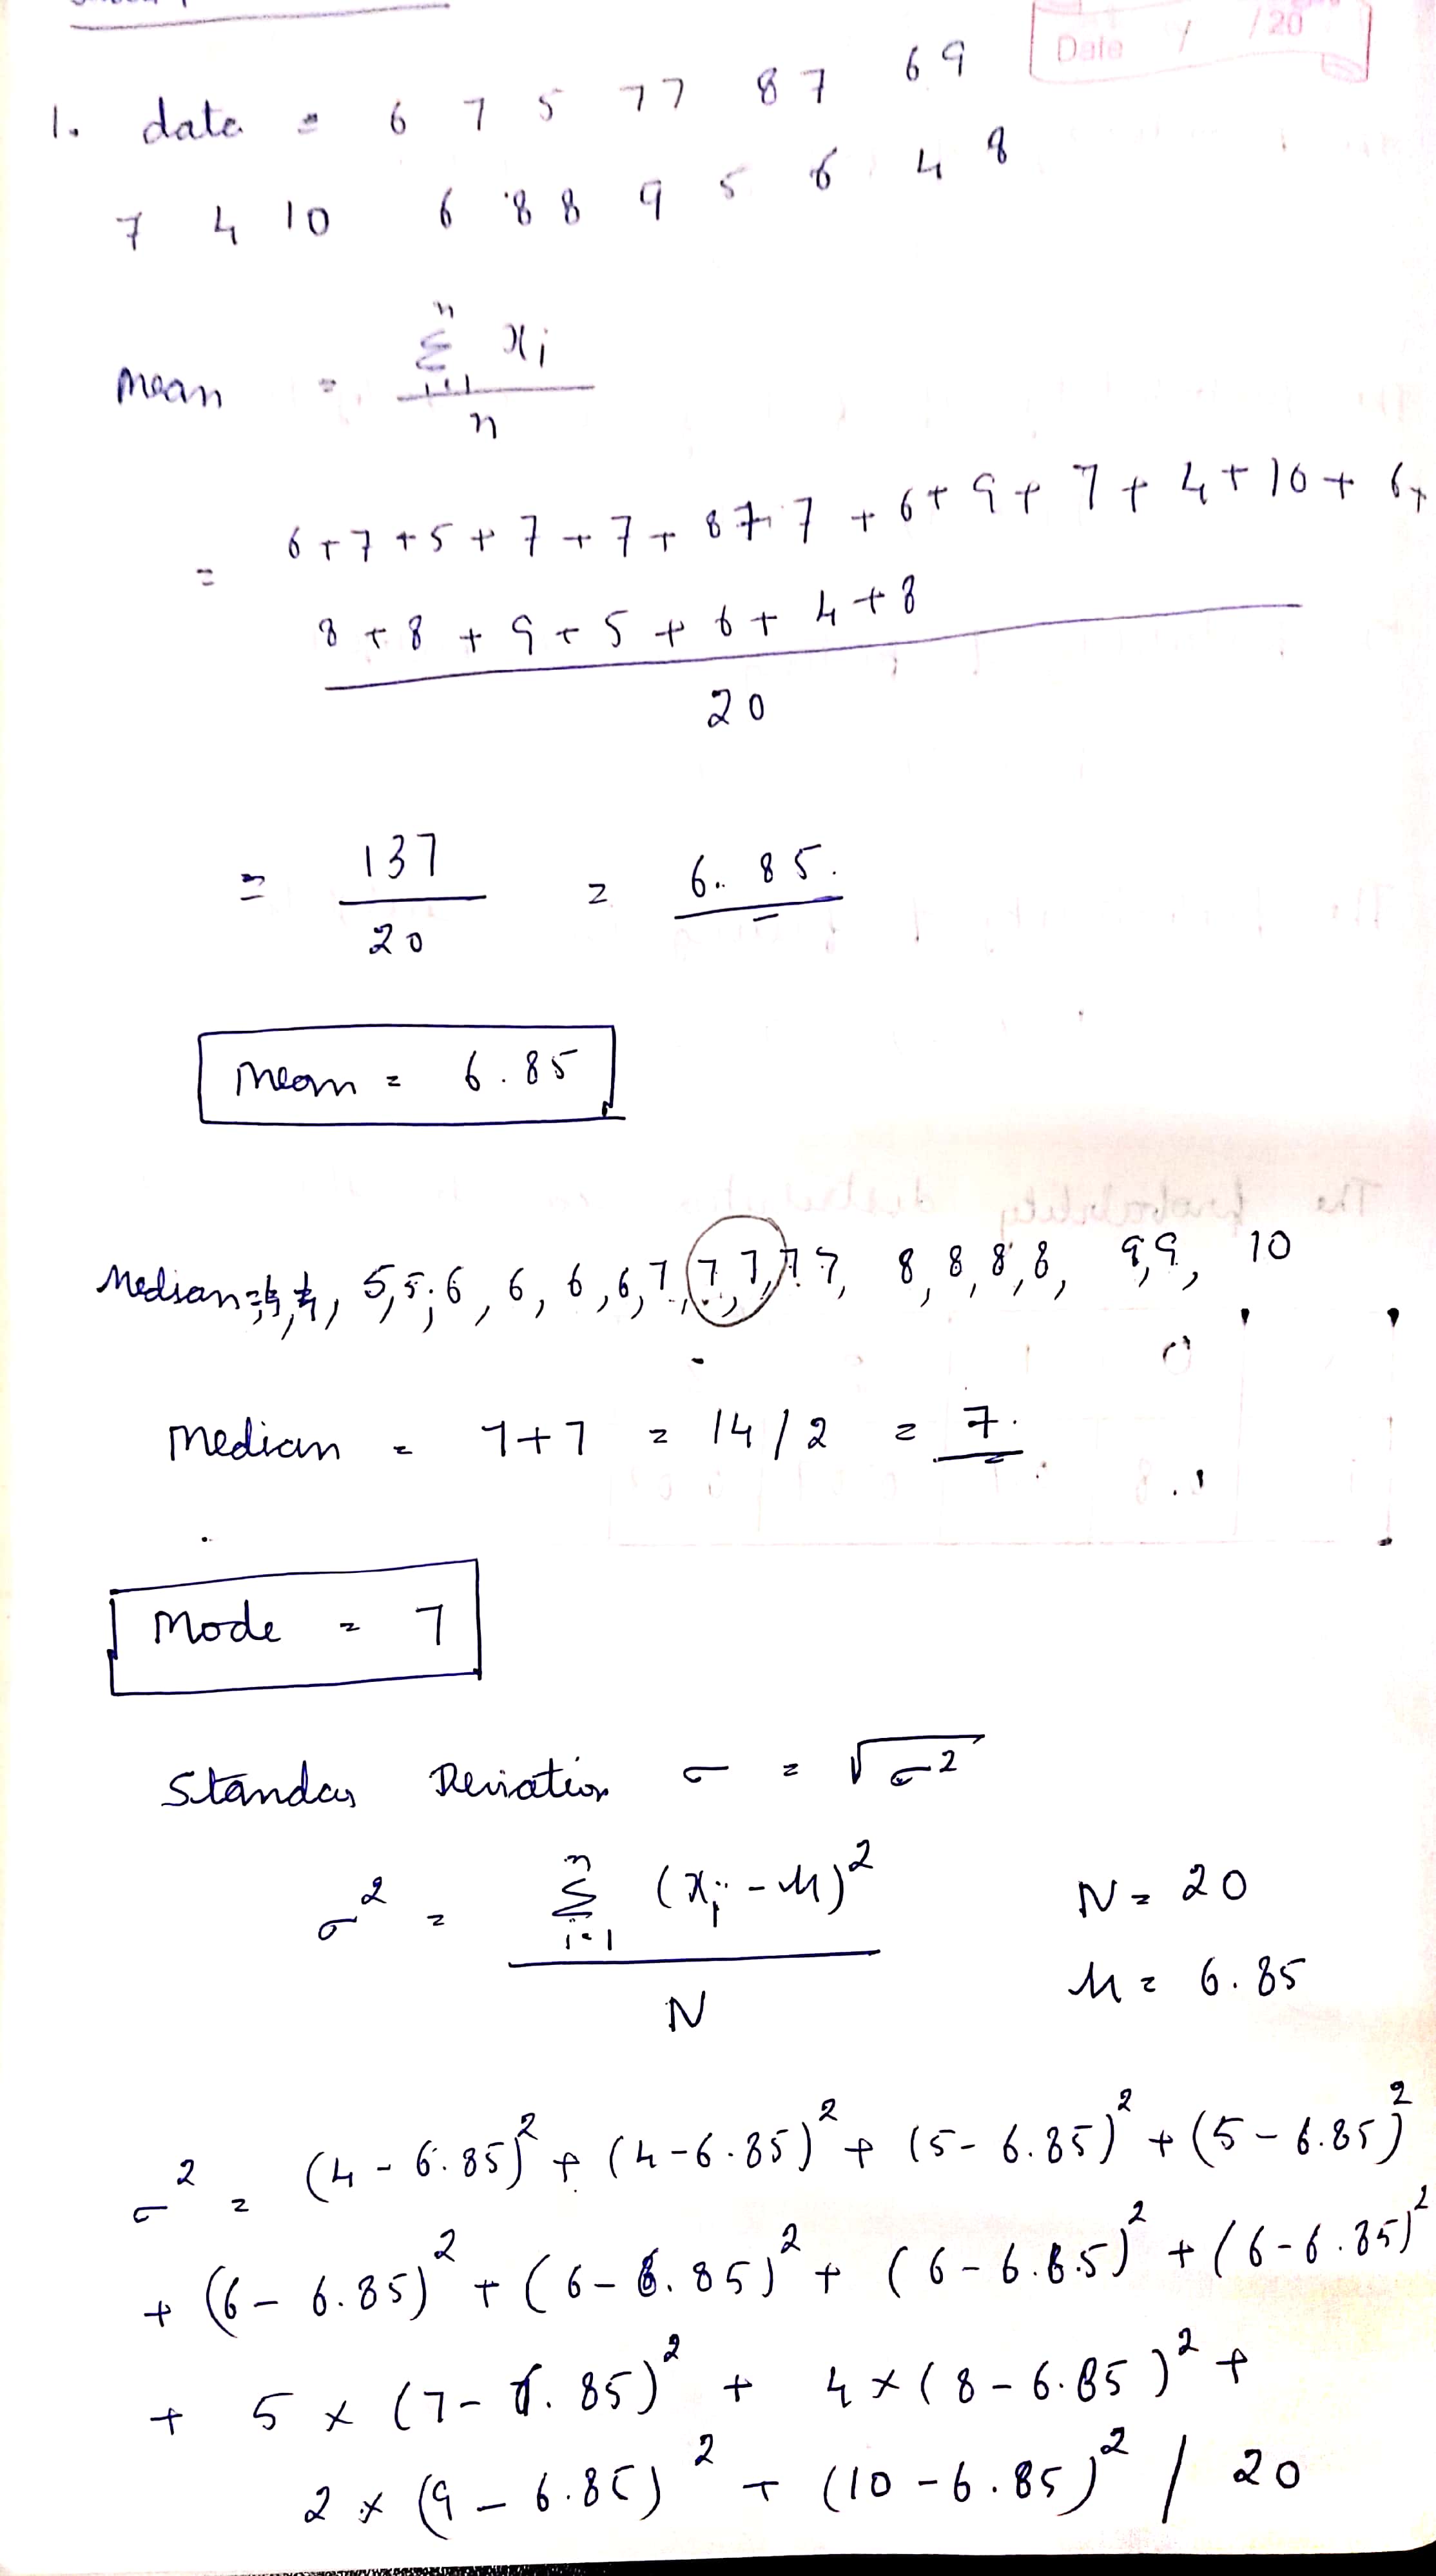 Date / /20
1. data = 6 7 5 7 7 8 7 6 9
7 4 10 6 8 8 9 5 6 4 8
mean = Σ xi
n
i=1
n
= 6+7+5+7+7+8+7+6+9+7+4+10+6+
8+8+9+5+6+4+8
20
= 137 = 6.85.
20
mean = 6.85
Median = 4, 4, 5, 5, 6, 6, 6, 6, 7, 7, 7, 7, 7, 8, 8, 8, 8, 9, 9, 10
median = 7+7 = 14/2 = 7.
Mode = 7
Deviation σ = √σ²
σ² = Σ (xi - μ)² N = 20
n
i=1
N μ = 6.85
σ² = (4 - 6.85)² + (4-6.85)² + (5- 6.85)² + (5 - 6.85)²
+ (6 - 6.85)² + (6 - 6.85)² + (6 - 6.85)² + (6-6.85)²
+ 5 × (7- 6.85)² + 4 × (8 - 6.85)² +
2 × (9 - 6.85)² + (10 - 6.85)² / 20